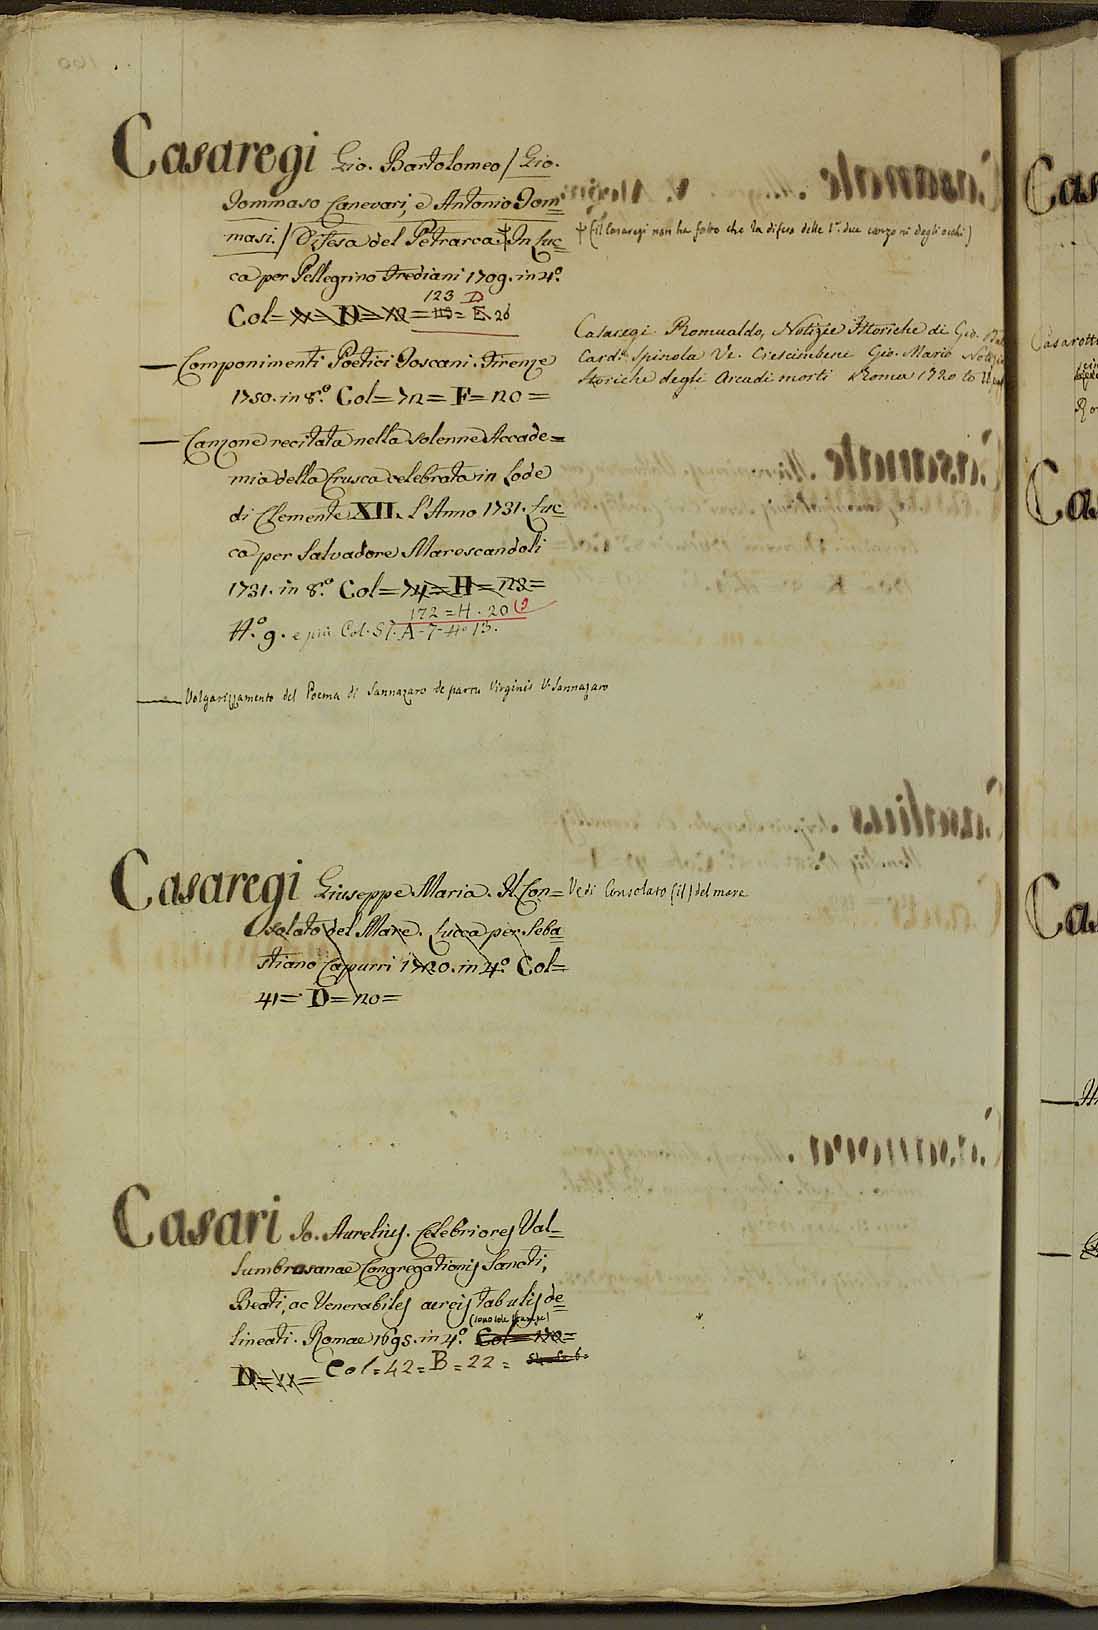 Casaregi Gio. Bartolomeo / Gio.
Tommaso Canevari, e Antonio Tom=
masi. / Difesa del Petrarca. † In Luc=
ca per Pellegrino Frediani 1709. in 4.º
123 D
Col= = E. 26
— Componimenti Poetici Toscani. Firenze
1750. in 8.º Col= 72= F= 20=
— Canzone recitata nella solenne Accade=
mia della Crusca celebrata in Lode
di Clemente XII. l'Anno 1731. Luc=
ca per Salvadore Marescandoli
1731. in 8.º Col= 74= H= 123=
172 = H. 20
N.º 9. e più Col. 57. A-7-Nº 13.
— Volgarizzamento del Poema di Sannazaro de partu Virginis V. Sannazaro
† (il Casaregi non ha fatto che la difesa delle 1.e due canzoni degli occhi)
Casaregi Romualdo, Notizie Istoriche di Gio.
Card.e Spinola Ve. Crescimbene Gio. Mario
Storiche degli Arcadi morti Roma 1720 to
Casaregi Giuseppe Maria. Il Con= Vedi Consolato (il) del mare
solato del Mare. Lucca per Seba=
stiano Capurri 1720. in 4.º Col=
41= D= 20=
Casari Jo. Aurelius. Celebriores Val=
lumbrosanae Congregationis Sancti,
Beati, ac Venerabiles aereis tabulis de=
(sono sole stampe)
lineati. Romae 1695. in 4.º Col= 120=
D= Col= 42= B= 22=
Cas
Casarotti
Ca
Ca